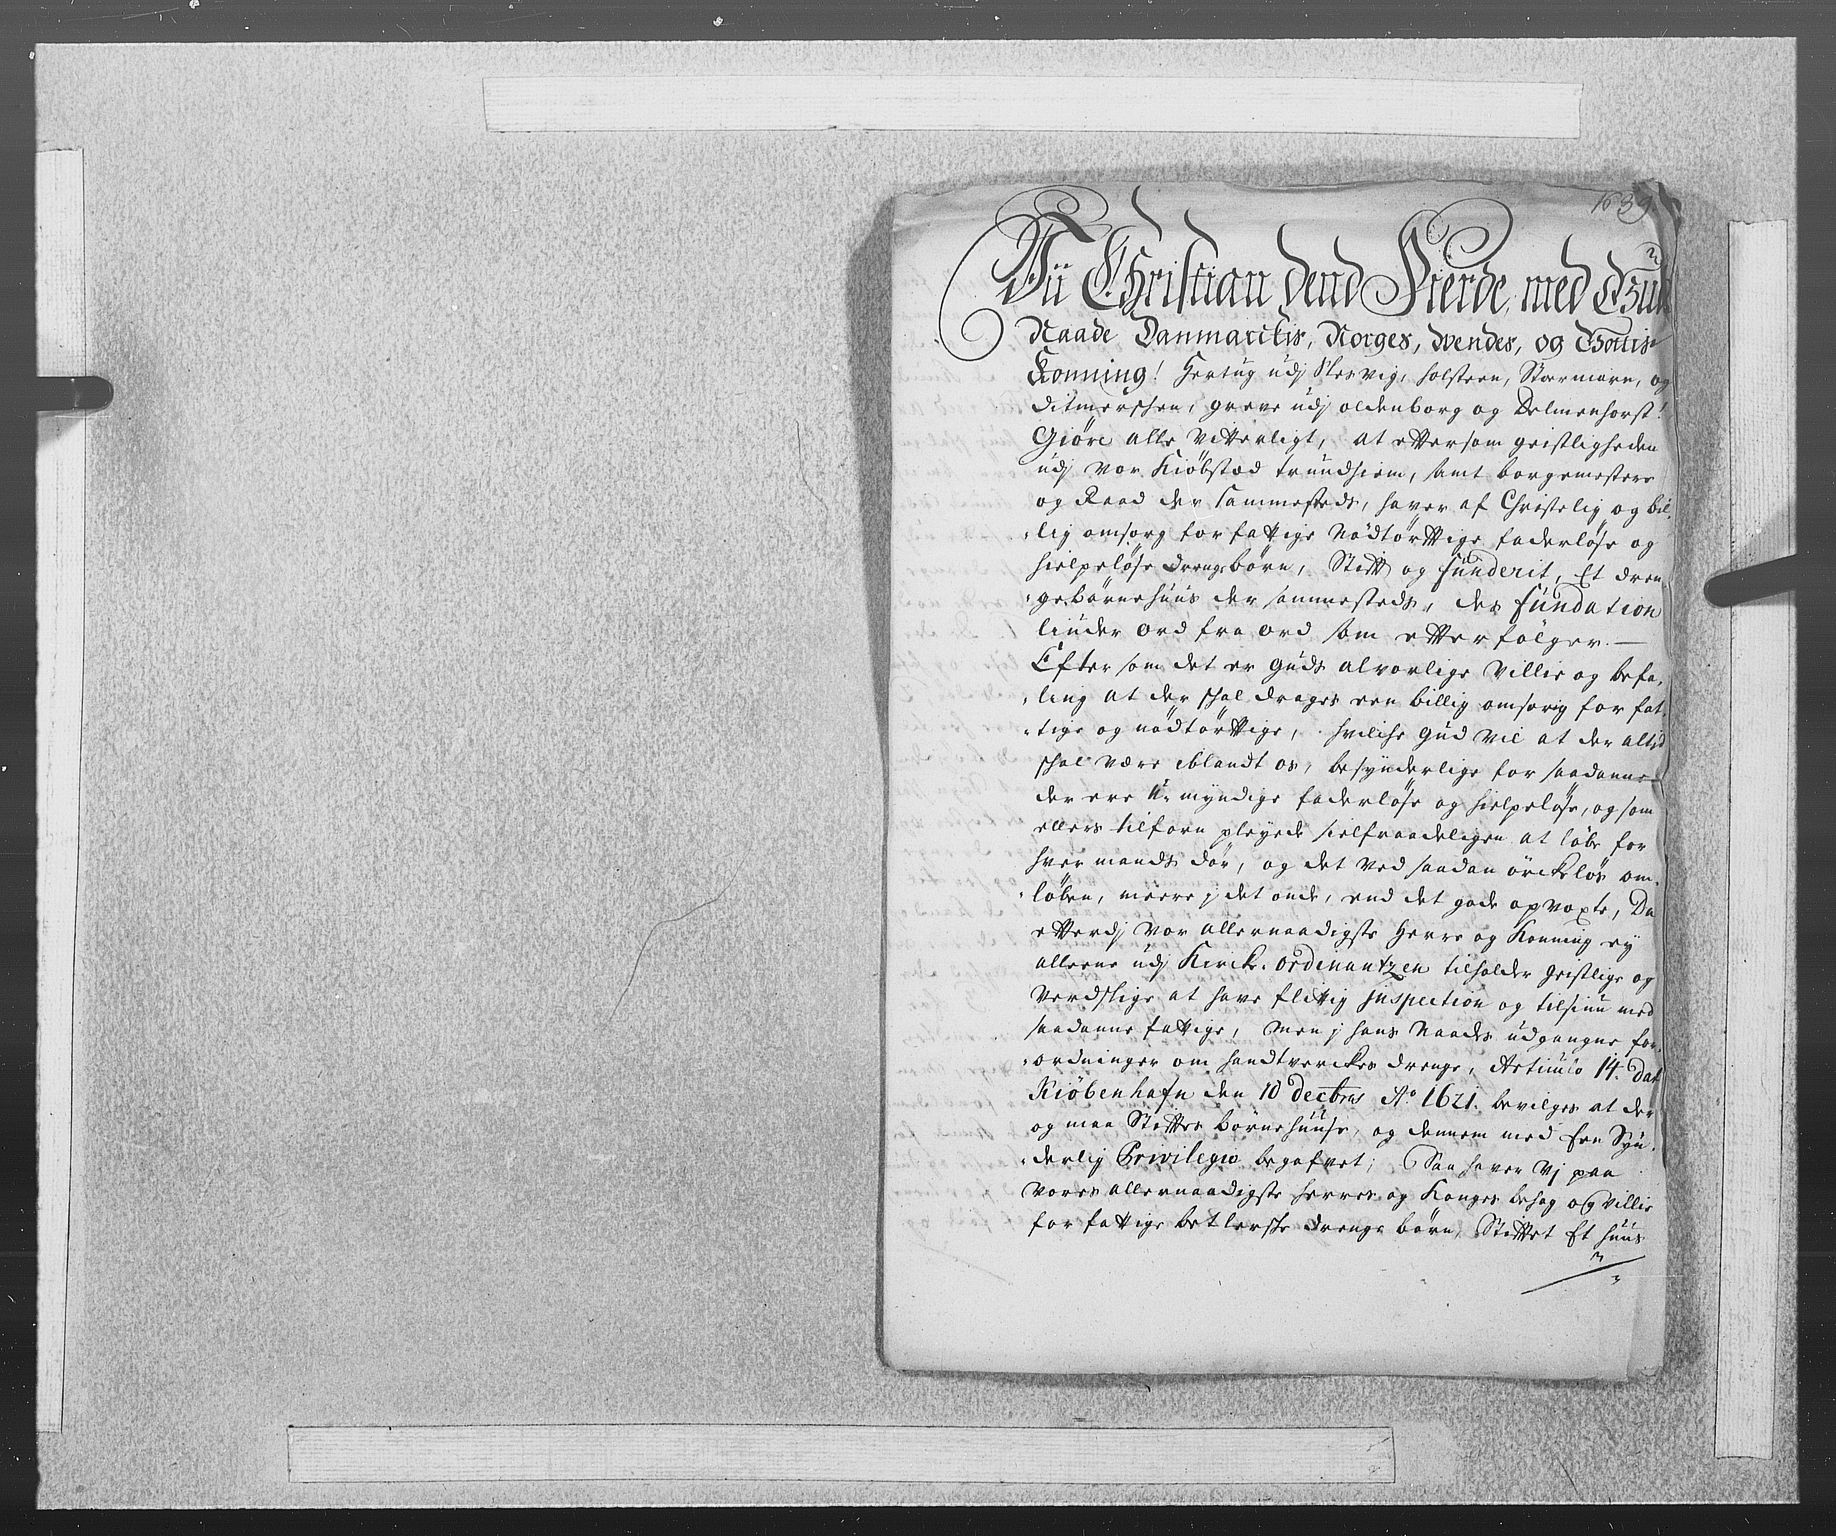 1639.
Vii Christian dend Fierde, med Guds
Naade Danmarckis, Norges, Wendes, og Gottis-
Konning! Hertug udj Slesvig, Holsteen, Stormarn, og
Ditmerschen, greve udj oldenborg og Delmenhorst!
Giöre alle vitterligt, at eftersom geistligheden
udj vor Kiöbstæd Trundhiem, samt borgemestere
og Raad der sammesteds, haver af Christelig og bil-
-lig omsorg for fattige Nödtörftige faderlöse og
hielpelöse drenge börn, Stift og funderit, Et dren-
-ge börnehuus der sammesteds, des fundation
liuder ord fra ord som efterfölger. —
Efter som det er Guds alvorlige villie og befa-
-ling at der skal drages een billig omsorg for fat-
-tige og nödtörftige, hvilke Gud vil at der altid
skal være iblandt os, besynderlige for saadanne
der ere U-myndige faderlöse og hielpelöse, og som
ellers tilforn pleyede sielfraadeligen at löbe for
hver mands dör, og det ved saadan örcklös om-
-löben, meere j det onde, end det gode opvoxte, Da
efterdj vor allernaadigste Herre og Konning ey
alleene udj Kircke-ordinantzen tilholder geistlige og
verdslige at have flittig inspection og tilsiun med
saadanne fattige, Men j hans Naades udgangne for-
-ordninger om handtverckes drenge, Articulo 14. Dat
Kiöbenhafn den 10 decbris Aº 1621. bevilges at der
og maa Stiftes börnehuuse, og dennem med Een Syn-
-derlig Privilegio begafvet; Saa haver vj paa
vores allernaadigste herres og Konges behag og villie
for fattige betlerske drenge börn, Stiftet Et huus